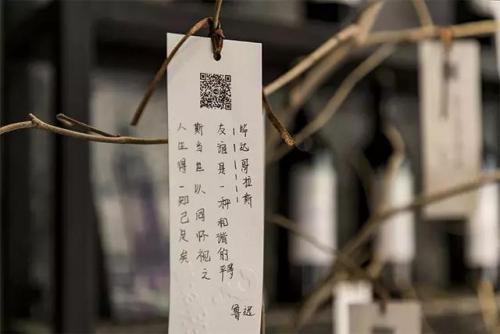 人生得一知己足矣
斯当世以同怀视之
友谊是一种和谐的平等
------毕达哥拉斯
鲁迅